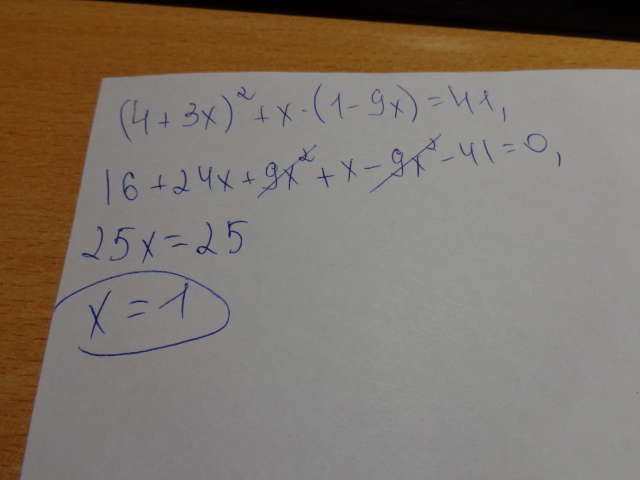 (4+3x)²+x·(1-9x)=41,
16+24x+9x²+x-9x²-41=0,
25x=25
x=1